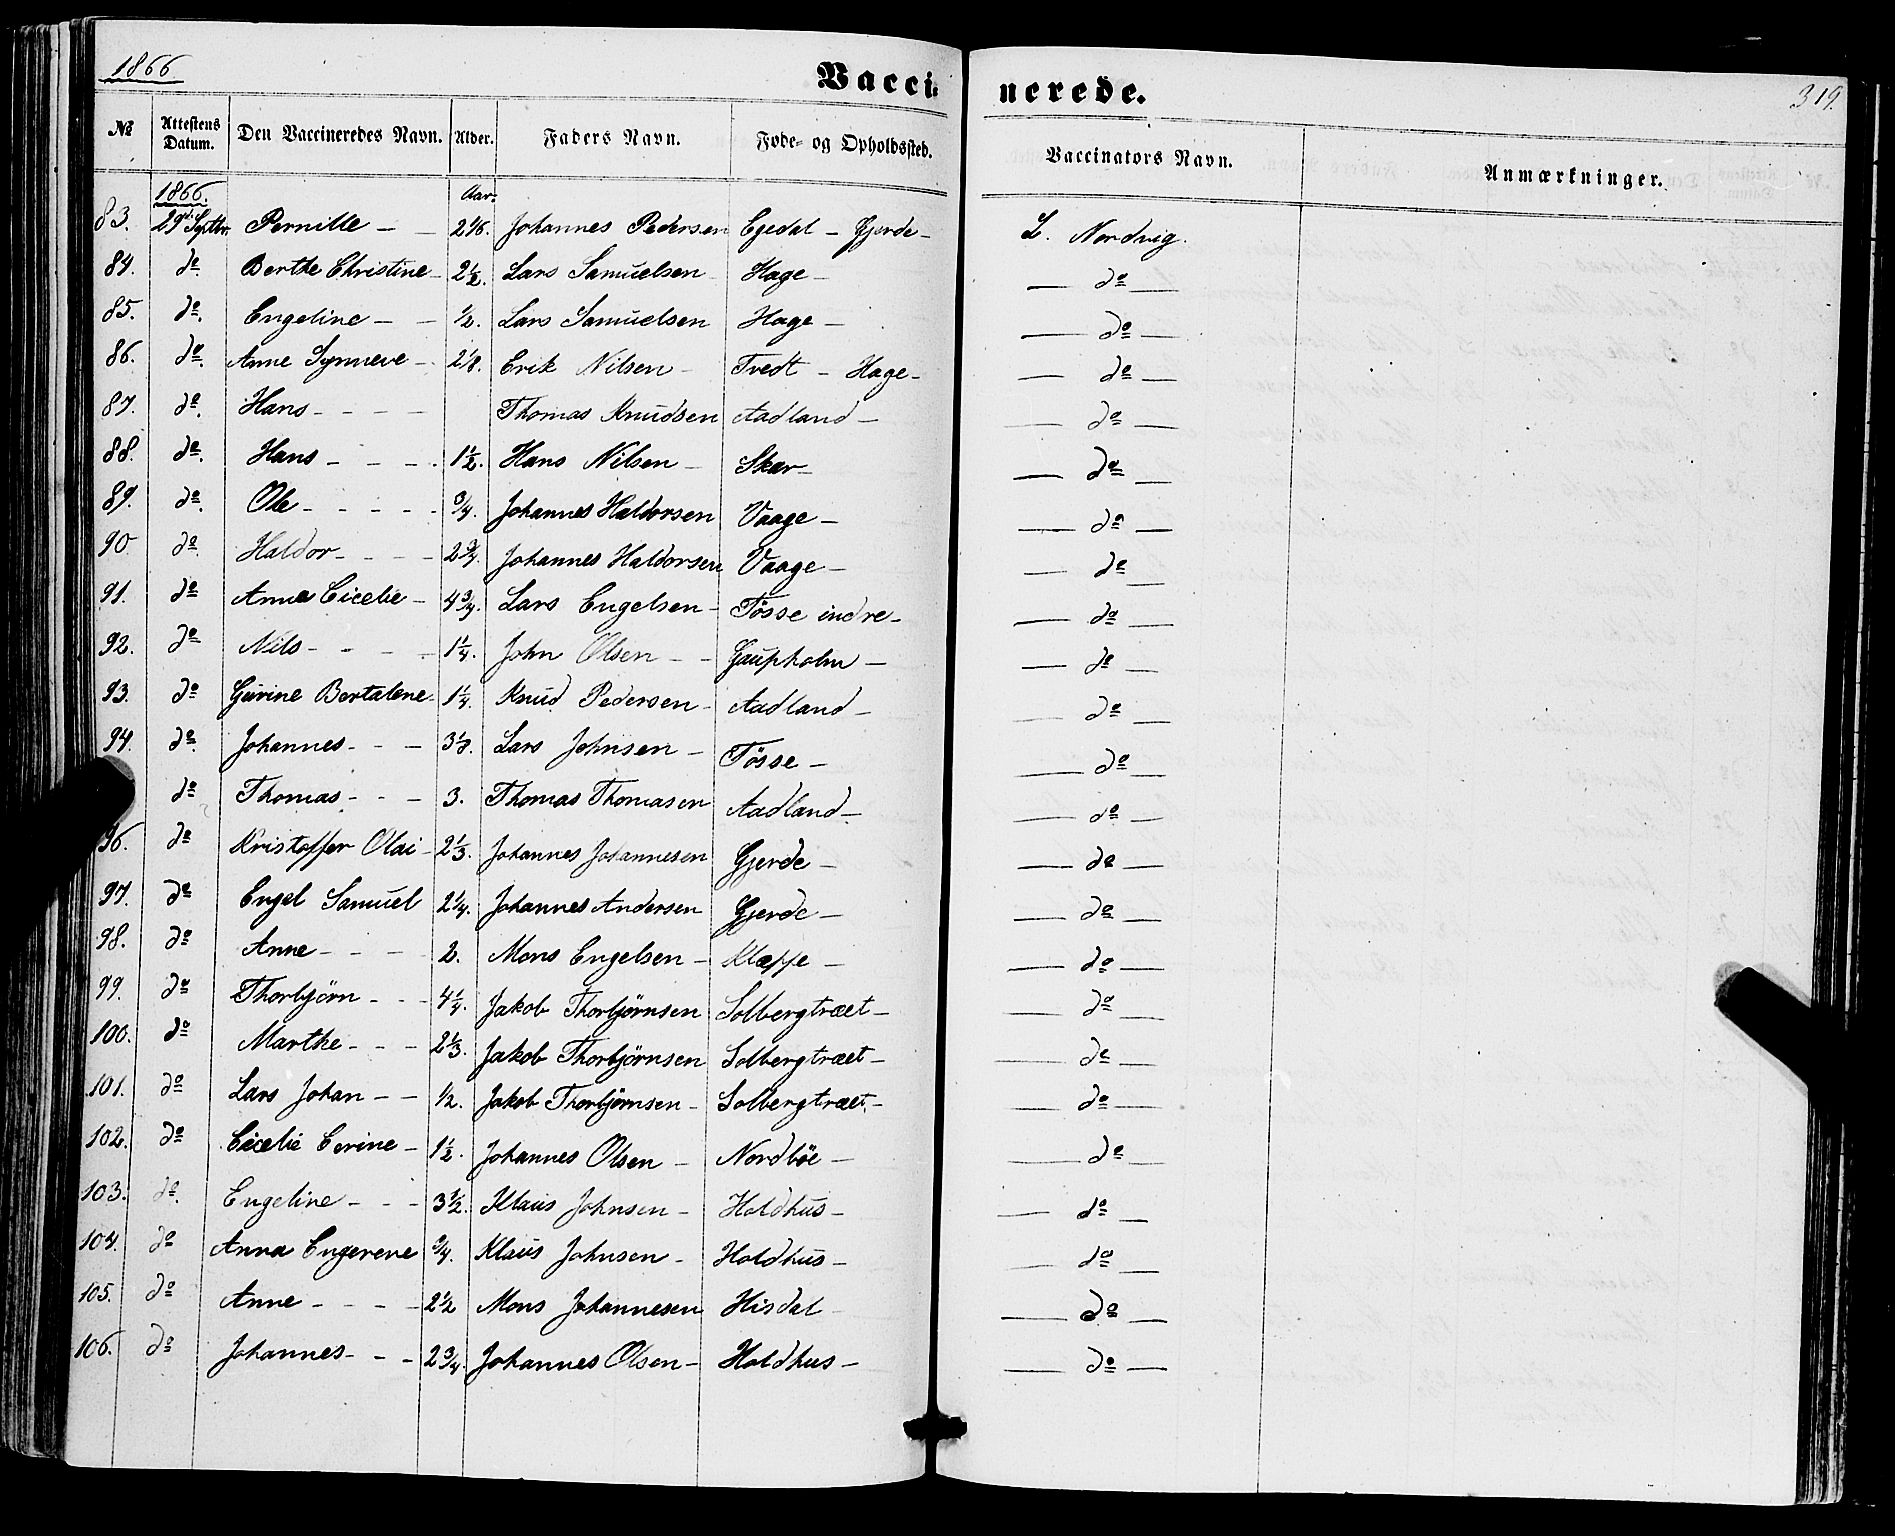 1866
Vaccinerede.
319.
№ Attestens Datum. Den Vaccineredes Navn. Alder. Faders Navn. Føde- og Opholdssted. Vaccinators Navn. Anmærkninger.
1866. Aar.
83. 29de Septbr. Pernille - - 2 1/6. Johannes Pedersen Egedal - Gjerde - L. Nordvig.
84. do. Berthe Christine - 2 1/2. Lars Samuelsen Hage - — do —
85. do. Engeline - - 1/2. Lars Samuelsen Hage - — do —
86. do. Anne Synneve - 2 1/8. Erik Nilsen - Tvedt - Hage - — do —
87. do. Hans - - - - Thomas Knudsen Aadland - — do —
88. do. Hans - - - - 1 1/2. Hans Nilsen - Skar - — do —
89. do. Ole - - - - - 3/4. Johannes Haldorsen Vaage - — do —
90. do. Haldor - - - - 2 3/4. Johannes Haldorsen Vaage - — do —
91. do Anna Cicelie - 4 3/4. Lars Engelsen - Tösse indre - — do —
92. do Nils - - - - 1 1/4. John Olsen - - Gaupholm - — do —
93. do Gurine Bertaline 1 1/4. Knud Pedersen - Aadland - — do —
94. do. Johannes - - - 3 1/8. Lars Johnsen - Tösse - — do —
do Thomas - - - 3. Thomas Thomasen Aadland - — do —
96. do Kristoffer Olai - 2 1/3. Johannes Johannesen Gjerde - — do —
97. do Engel Samuel 2 1/4. Johannes Andersen Gjerde - — do —
98. do Anne - - - 2. Mons Engelsen - Kleppe - — do —
99. do Thorbjörn - - - 4 1/4. Jakob Thorbjörnsen Solbergtræet - — do —
100. do Marthe - - - 2 1/3. Jakob Thorbjörnsen Solbergtræet - — do —
101. do Lars Johan - - 1/2. Jakob Thorbjörnsen - Solbergtræet - — do —
102. do Cicelie Serine - 1 1/2. Johannes Olsen - Nordböe - — do —
103. do. Engeline - - - 3 1/2. Klaus Johnsen - Holdhus - — do —
104. do Anna Engerene 3/4. Klaus Johnsen - Holdhus - — do —
105. do Anne - - - - 2 1/2 Mons Johannesen Hisdal - — do —
106. do Johannes - - - 2 3/4. Johannes Olsen - Holdhus - — do —